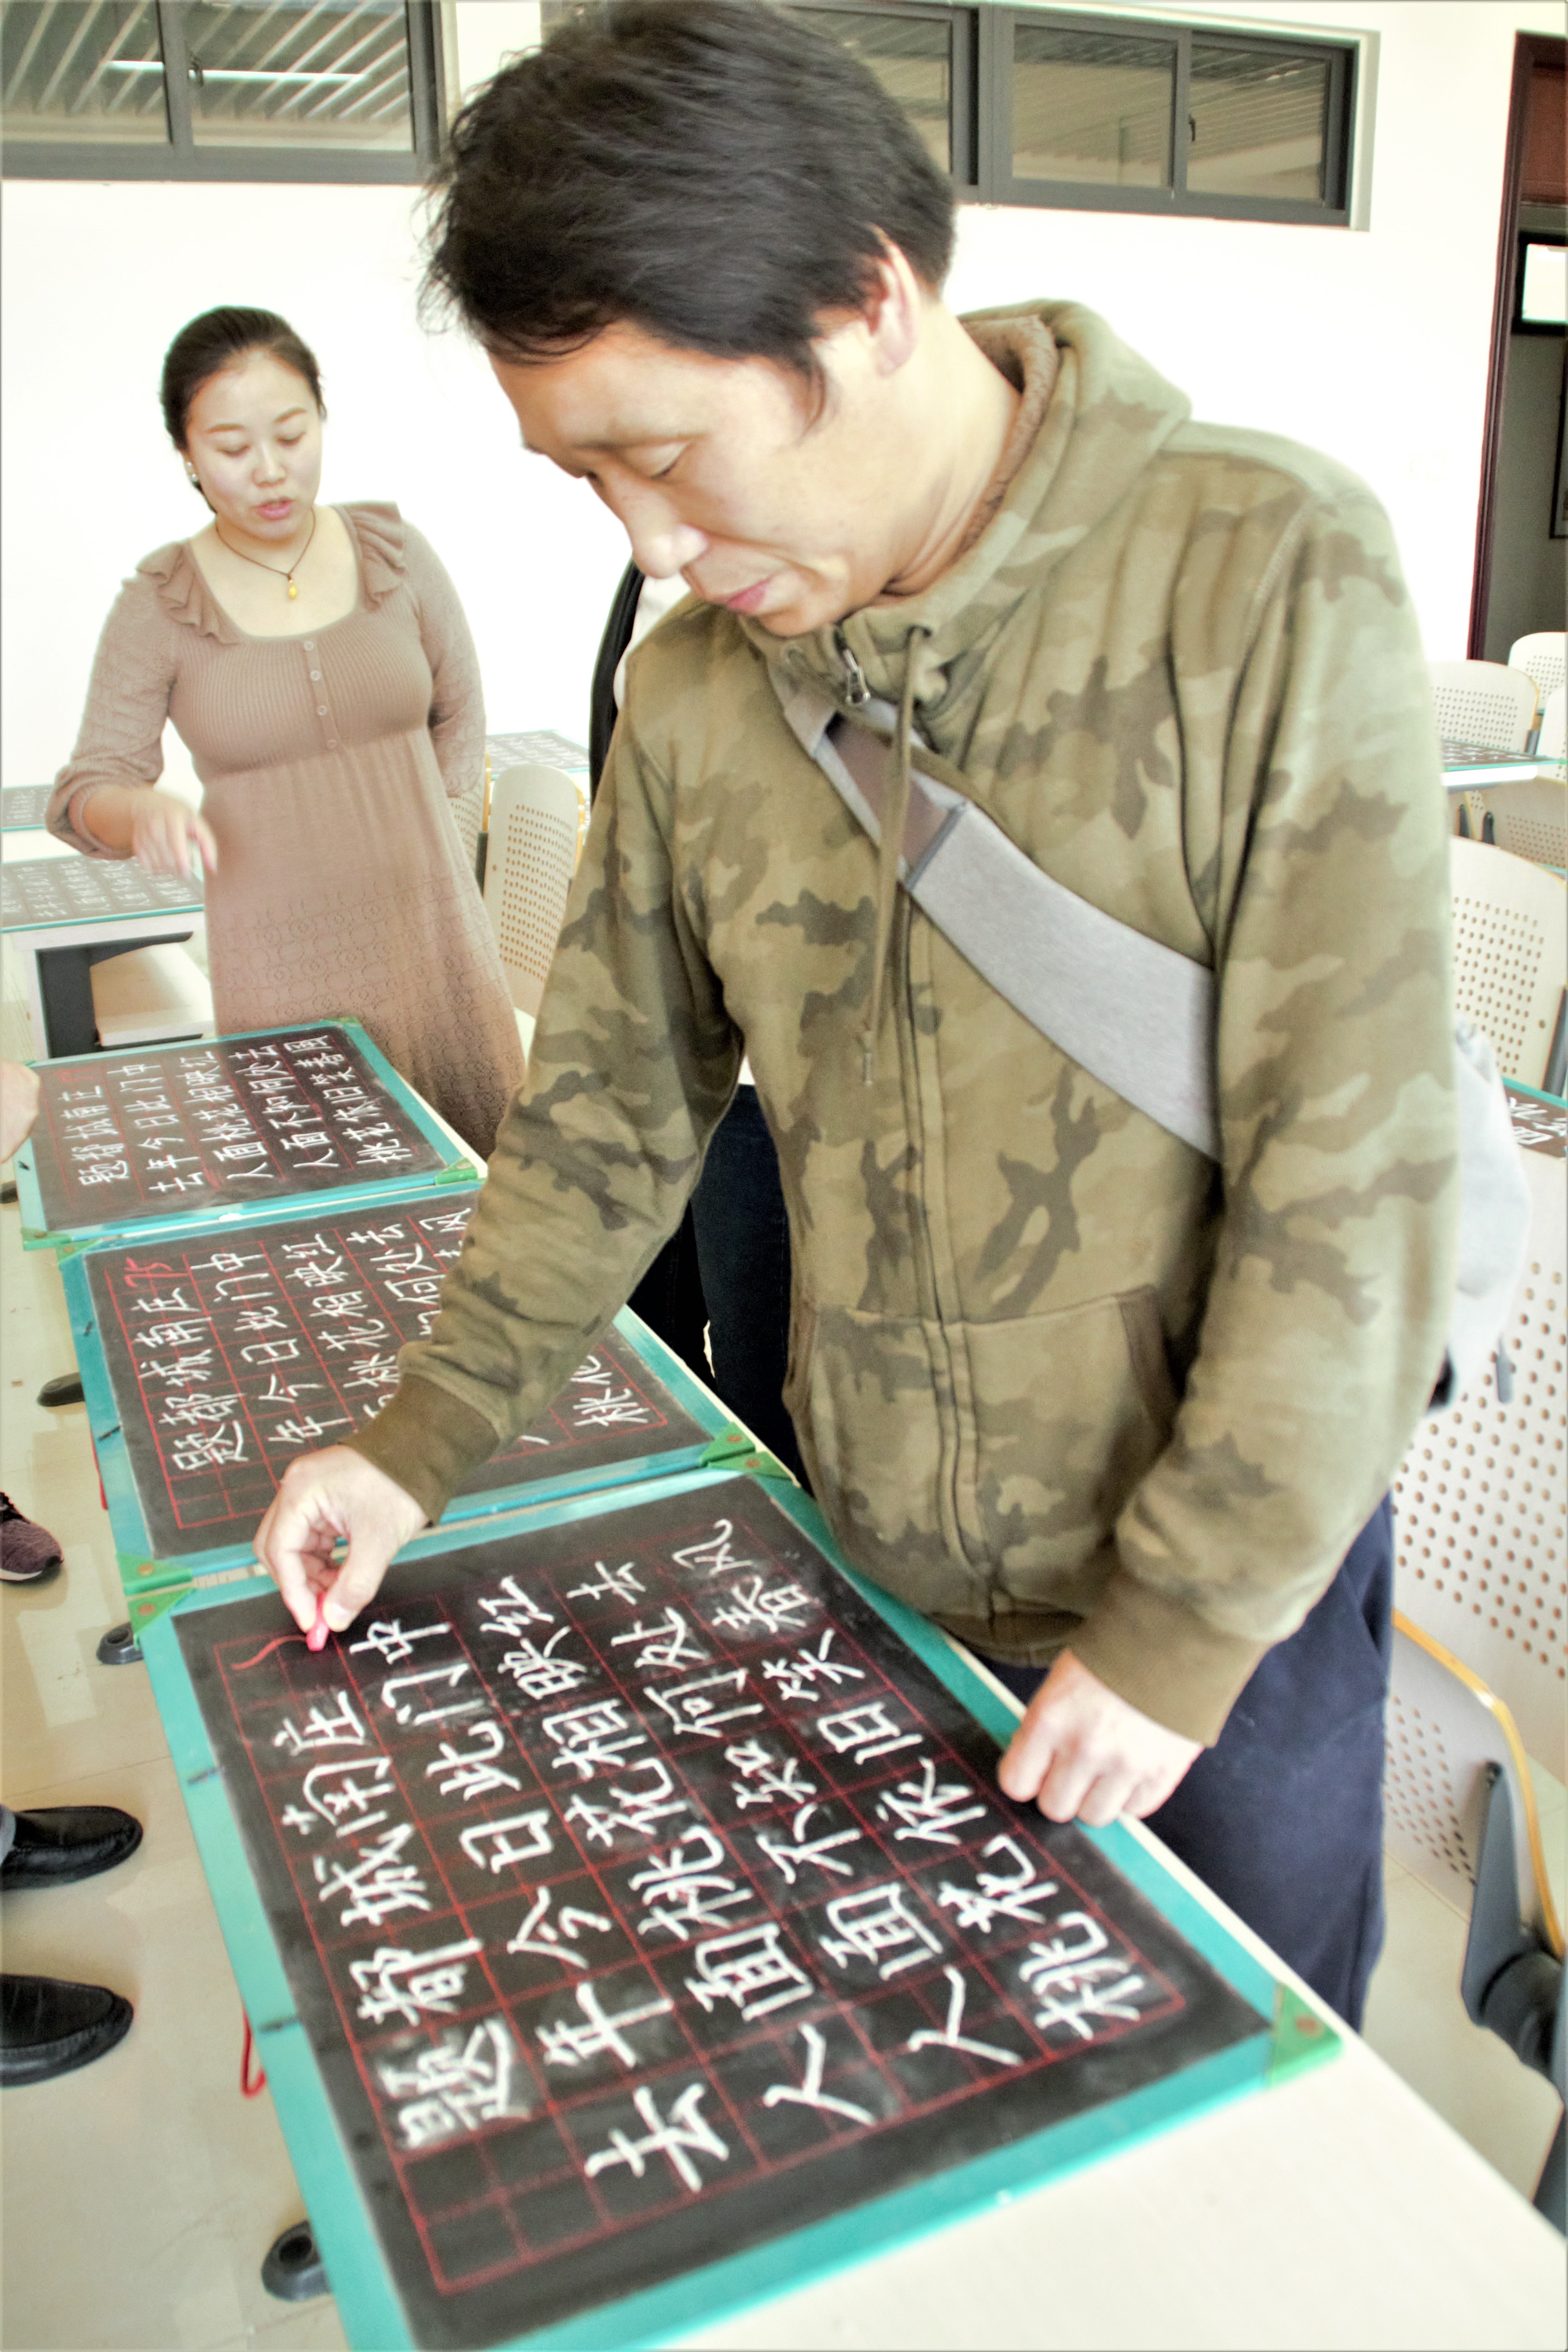 题都城南庄
去年今日此门中
人面桃花相映红
人面不知何处去
桃花依旧笑春风
题都城南庄 75
年今日此门中
桃花相映红
何处去
桃花
风
题都城南庄
去年今日此门中
人面桃花相映红
人面不知何处去
桃花依旧笑春风